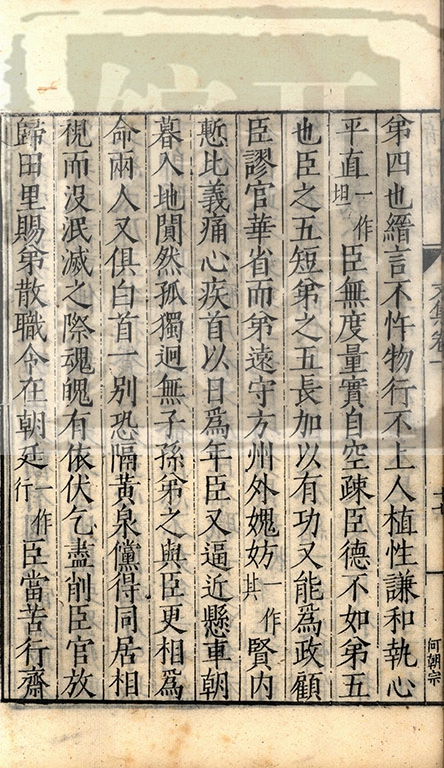 第四也縉言不忤物行不上人植性謙和執心
平直一作坦臣無度量實自空疎臣德不如弟五
也臣之五短弟之五長加以有功又能為政顧
臣謬官華省而弟遠守方州外媿妨一作其賢內
慙比義痛心疾首以日為年臣又逼近懸車朝
暮入地閴然孤獨迥無子孫弟之與臣更相為
命兩人又俱白首一別恐隔黃泉儻得同居相
視而沒泯滅之際魂魄有依伏乞盡削臣官放
歸田里賜弟散職令在朝廷一作行臣當苦行齋
何朝宗